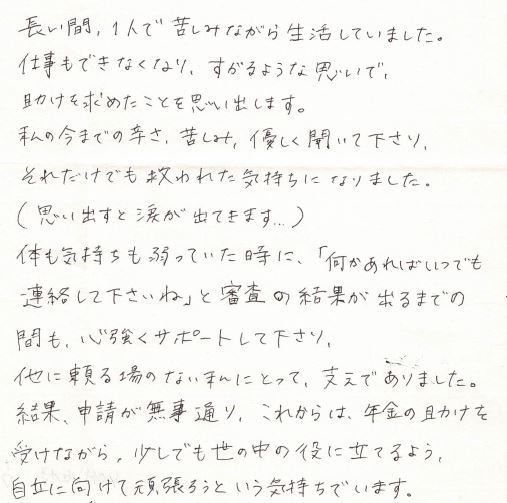 長い間,1人で苦しみながら生活していました。
仕事もできなくなり,すがるような思いで,
助けを求めたことを思い出します。
私の今までの辛さ,苦しみ,優しく聞いて下さり,
それだけでも救われた気持ちになりました。
(思い出すと涙が出てきます...)
体も気持ちも弱っていた時に、「何かあればいつでも
連絡して下さいね」と審査の結果が出るまでの
間も、心強くサポートして下さり,
他に頼る場のない
にとって、支えでありました。
結果、申請が無事通り、これからは、年金の助けを
受けながら,少しでも世の中の役に立てるよう,
自立に向けて頑張ろうという気持ちでいます。